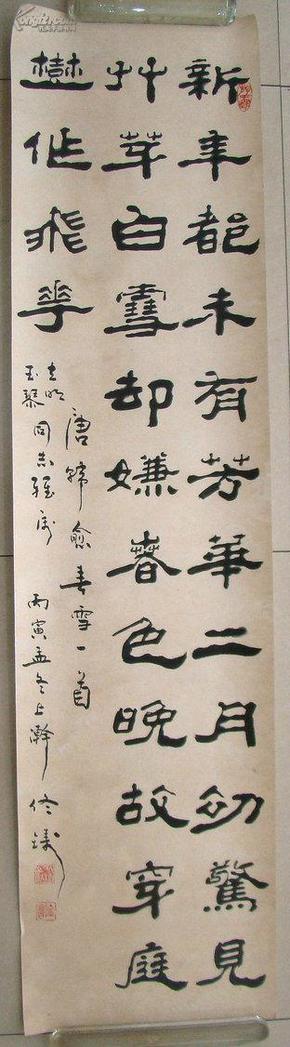 新年都未有芳華二月初驚見
艸芽白雪却嫌春色晚故穿庭
樹作飛花
唐韓愈春雪一首
玉琴同志雅属
丙寅孟冬上澣